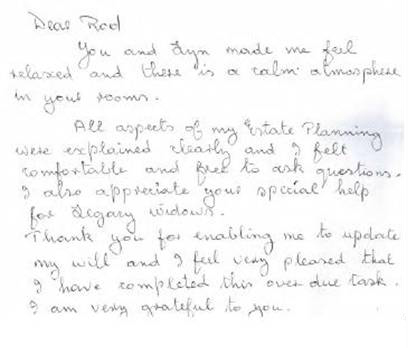 Dear Rod
You and Lyn made me feel
relaxed and there is a calm atmosphere
in your rooms.
All aspects of my Estate Planning
were explained clearly and I felt
comfortable and free to ask questions.
I also appreciate your special help
for Legacy widows.
Thank you for enabling me to update
my will and I feel very pleased that
I have completed this over due task.
I am very grateful to you.